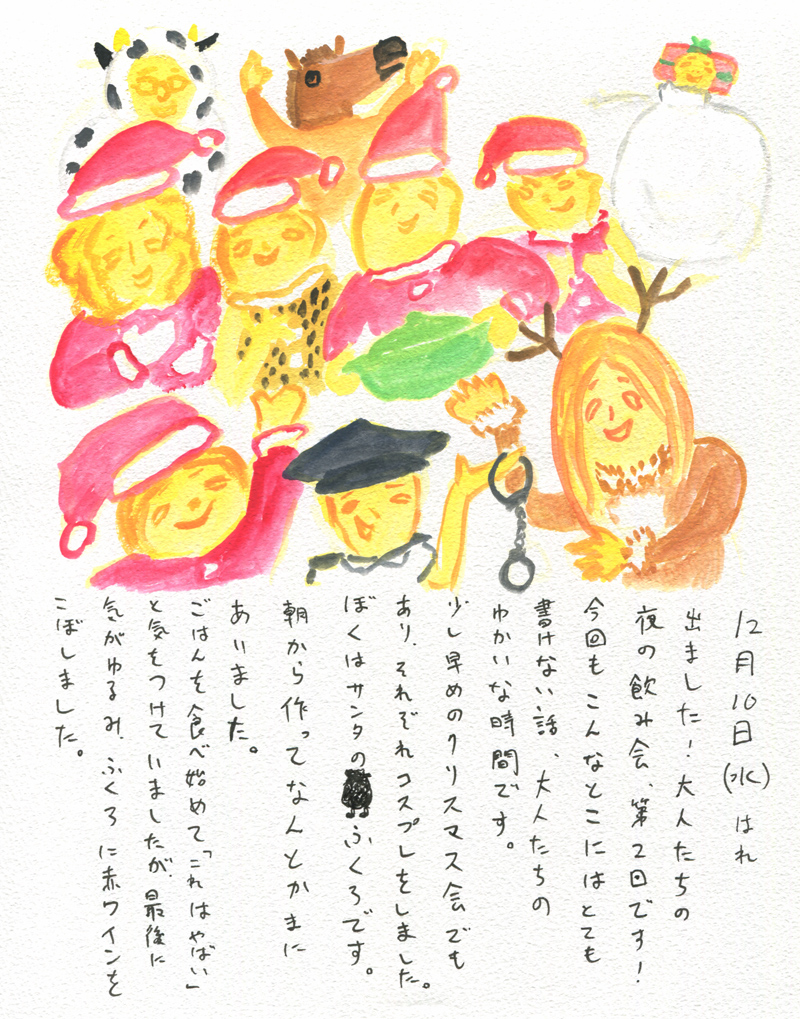 12月10日(水)はれ
出ました！大人たちの
夜の飲み会、第2回です！
今回もこんなとこにはとても
書けない話、大人たちの
ゆかいな時間です。
少し早めのクリスマス会でも
あり、それぞれコスプレをしました。
ぼくはサンタのふくろです。
朝から作ってなんとかまに
あいました。
ごはんを食べ始めて「これはやばい」
と気をつけていましたが、最後に
気がゆるみ、ふくろに赤ワインを
こぼしました。